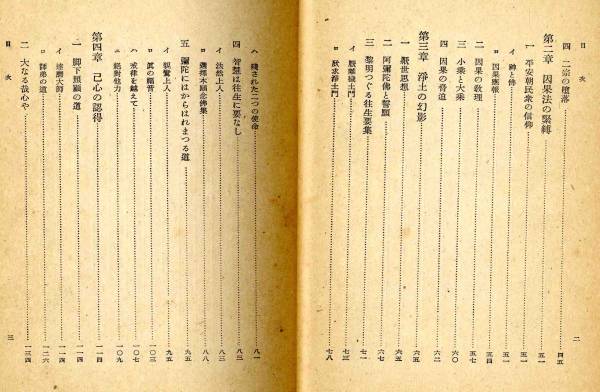 目次
四 二宗の墮落 四五
第二章 因果法の緊縛 五一
一 平安朝民衆の信仰 五一
イ 神と佛 五一
ロ 因果應報 五四
二 因果の教理 五七
三 小乘と大乘 六〇
四 因果の脅迫 六二
第三章 淨土の幻影 六五
一 厭世思想 六五
二 阿彌陀佛と誓願 六七
三 黎明つぐる往生要集 七一
イ 厭離穢土門 七三
ロ 欣求淨土門 七八
二
ハ 殘された二つの使命 八一
四 智慧は往生に要なし 八三
イ 法然上人 八三
ロ 選擇本願念佛集 八八
五 彌陀にはからはれまつる道 九五
イ 親鸞上人 九五
ロ 眞の福音 一〇三
ハ 戒律を越えて 一〇七
ニ 絕對他力 一〇九
第四章 己心の認得 一一四
一 脚下照顧の道 一一四
イ 達磨大師 一一四
ロ 師弟の道 一二六
二 大なる哉心や 一三四
目次
三